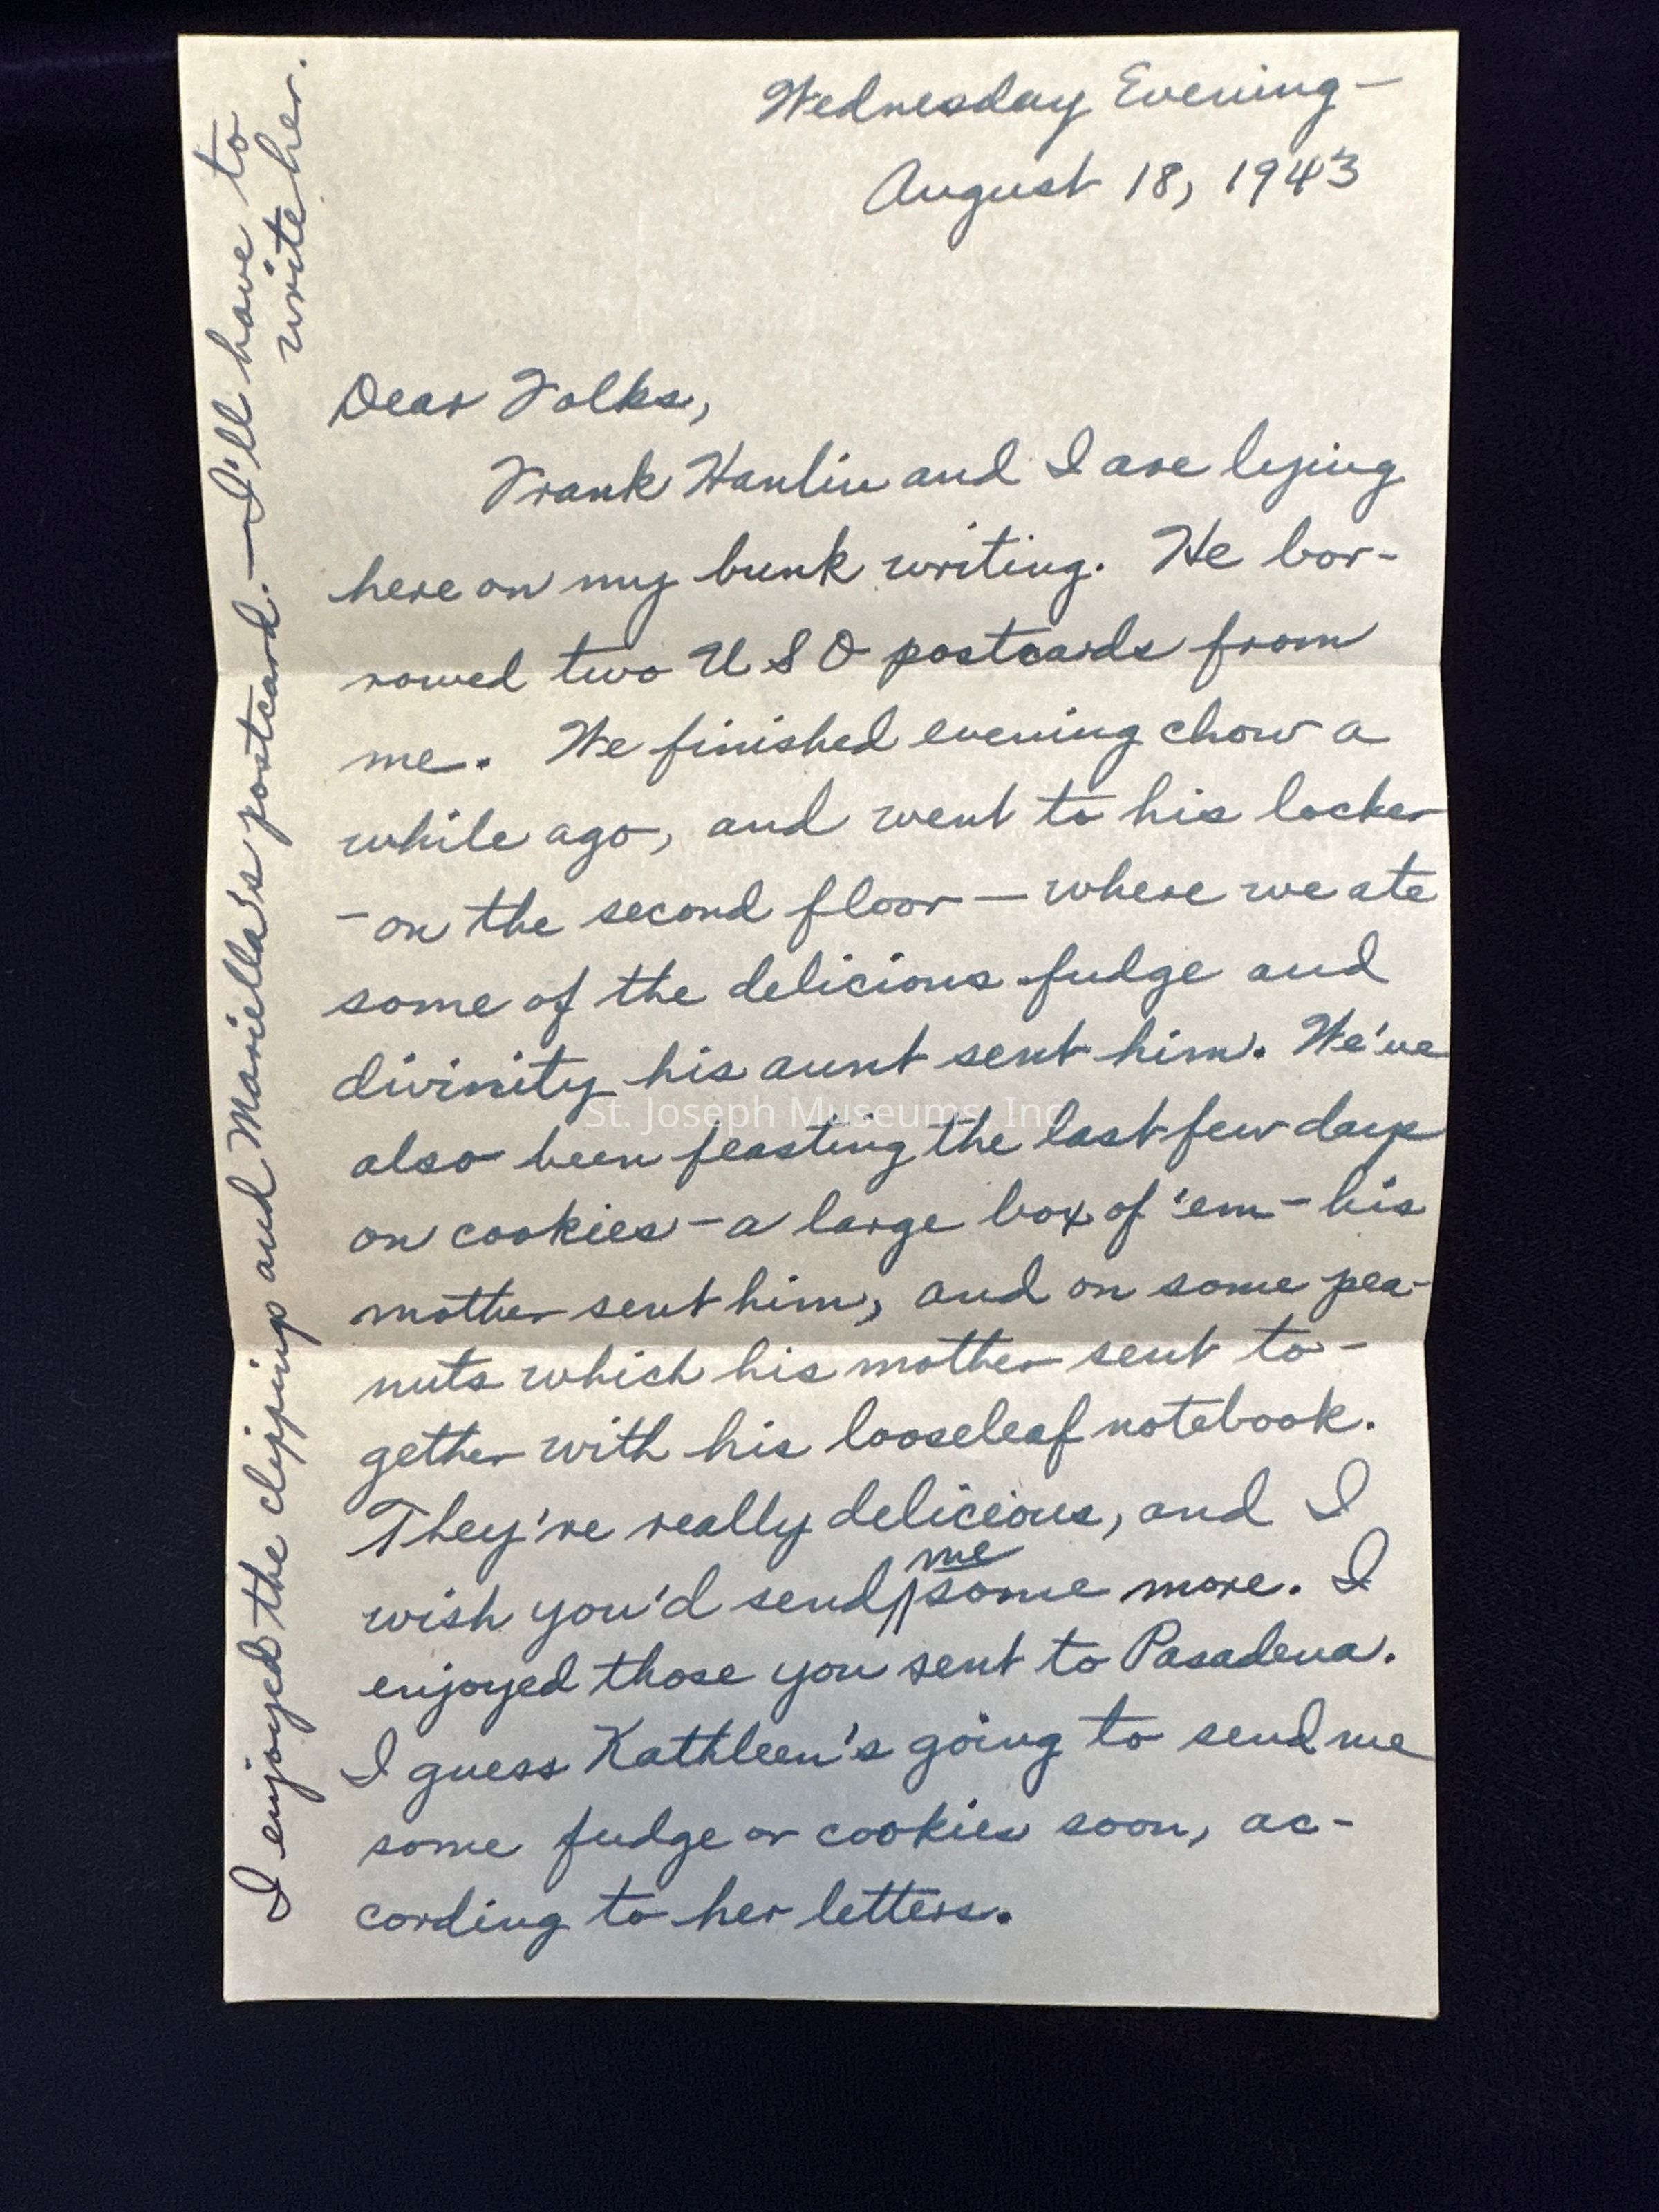 Wednesday Evening—
August 18, 1943
Dear Folks,
Frank Hanlin and I are lying
here on my bunk writing. He bor-
rowed two USO postcards from
me. We finished evening chow a
while ago, and went to his locker
—on the second floor—where we ate
some of the delicious fudge and
divinity his aunt sent him. We've
also been feasting the last few days
on cookies—a large box of 'em—his
mother sent him, and on some pea-
nuts which his mother sent to-
gether with his looseleaf notebook.
They're really delicious, and I
wish you'd send me some more. I
enjoyed those you sent to Pasadena.
I guess Kathleen's going to send me
some fudge or cookies soon, ac-
cording to her letters.
I enjoyed the clippings and Mariella's postcard.—I'll have to
write her.
St. Joseph Museums, Inc.